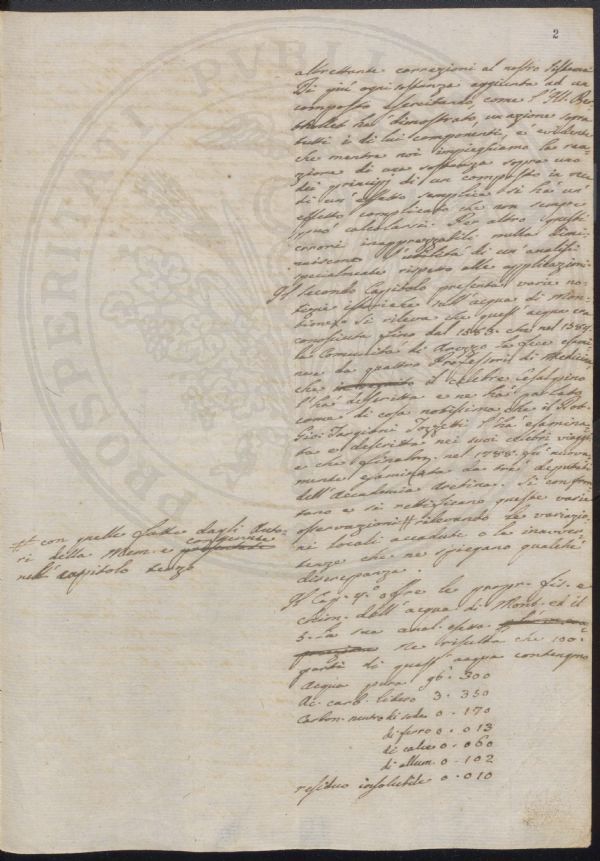 2
altrettante correzioni al nostro sistema
Di più ogni sostanza aggiunta ad un
composto esercitando, come l'Ill. Ber-
thollet ha dimostrato, un azione sopra
tutti i di lui componenti, è evidente
che mentre noi impieghiamo la rea-
zione di una sostanza sopra uno
dei principj di un composto in vece
di un' effetto semplice si ha un'
effetto complicato che non sempre
può calcolarsi. Per altro questi
errori inapprezzabili nulla dimi-
nuiscono l'utilità di un' analisi
specialmente rispetto alle applicazioni.
Il secondo Capitolo presenta varie no-
tizie istoriche sull'acqua di Mon-
tione. Si rileva che quest' acqua era
conosciuta fino dal 1583. che nel 1584.
la Comunità di Arezzo la fece esami-
nare da quattro Professori di Medicina
che il celebre Cesalpino
l'ha descritta e ne ha parlato
come di cosa notissima che il Dot.
Gio: Targioni Tozzetti l'ha esamina-
ta e descritta nei suoi viaggi
e che finalm. nel 1788. fu nuova-
mente esaminata da tre deputati
dell'Accademia Aretina. Si confron-
tano e si rettificano queste varie
osservazioni # rilevando le variazio-
ni locali accadute o le inavver-
tenze che ne spiegano qualche
discrepanza.
# con quelle fatte dagli Auto-
ri della Mem. e confermate
nell' capitolo terzo
Il Cap. 4.° offre le propr. fis. e
chim. dell'acqua di Mont. ed il
5. la sua anal. esatta.
ne risulta che 100.
parti di quest' acqua contengono
Acqua pura 96. 300
Ac. carb. libero 3. 350
Carbon. neutro di soda 0. 170
di ferro 0. 013
di calce 0. 060
di allum. 0. 102
residuo insolubile 0. 010
PROSPERITATI PUBLI